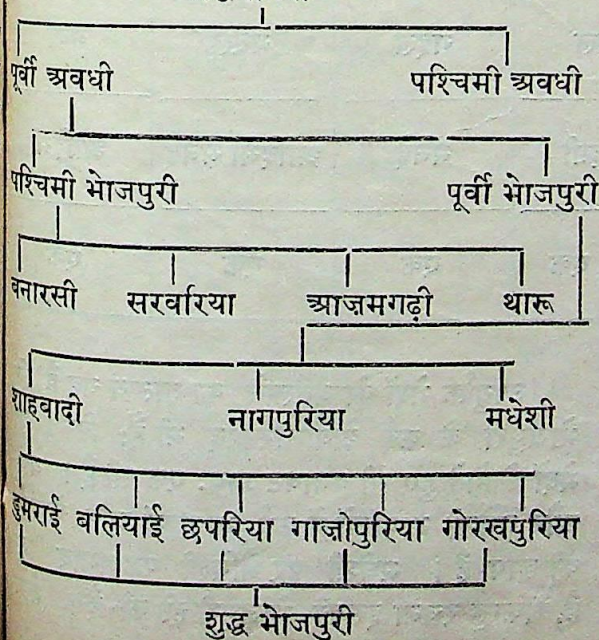 पूर्वी अवधी पश्चिमी अवधी
पश्चिमी भोजपुरी पूर्वी भोजपुरी
बनारसी सरवरिया आज़मगढ़ी थारू
शाहबादी नागपुरिया मधेशी
डुमराई बलियाई छपरिया गाजीपुरिया गोरखपुरिया
शुद्ध भोजपुरी